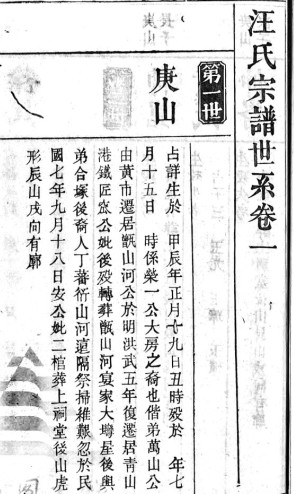 汪氏宗譜世系卷一
第一世
庚山
占詳生於 甲辰年正月十九日丑時歿於 年七
月十五日 時係榮一公大房之裔也偕弟萬山公
由黄市遷居甑山河公於明洪武五年復遷居青山
港鐵匠公妣後歿轉葬甑山河宴家大塆屋後與
弟合塚後裔人丁蕃衍山河遠隔祭掃維艱忽於民
國七年九月十八日安公妣二棺葬上祠堂後山虎
形辰山戌向有廓